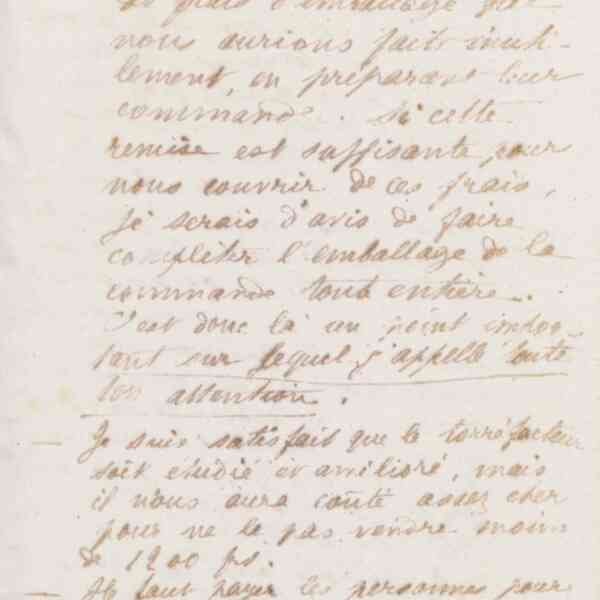 frais d'emballage que
nous aurions faits inuti-
lement, en préparant leur
commande. Si cette
remise est suffisante pour
nous couvrir de ces frais,
je serais d'avis de faire
compléter l'emballage de la
commande tout entière.
C'est donc là un point impor-
tant sur lequel j'appelle toute
ton attention.
— Je suis satisfait que le torréfacteur
soit étudié et amélioré, mais
il nous aura coûté assez cher
pour ne le pas vendre moins
de 1200 frs.
— Il faut payer les personnes pour